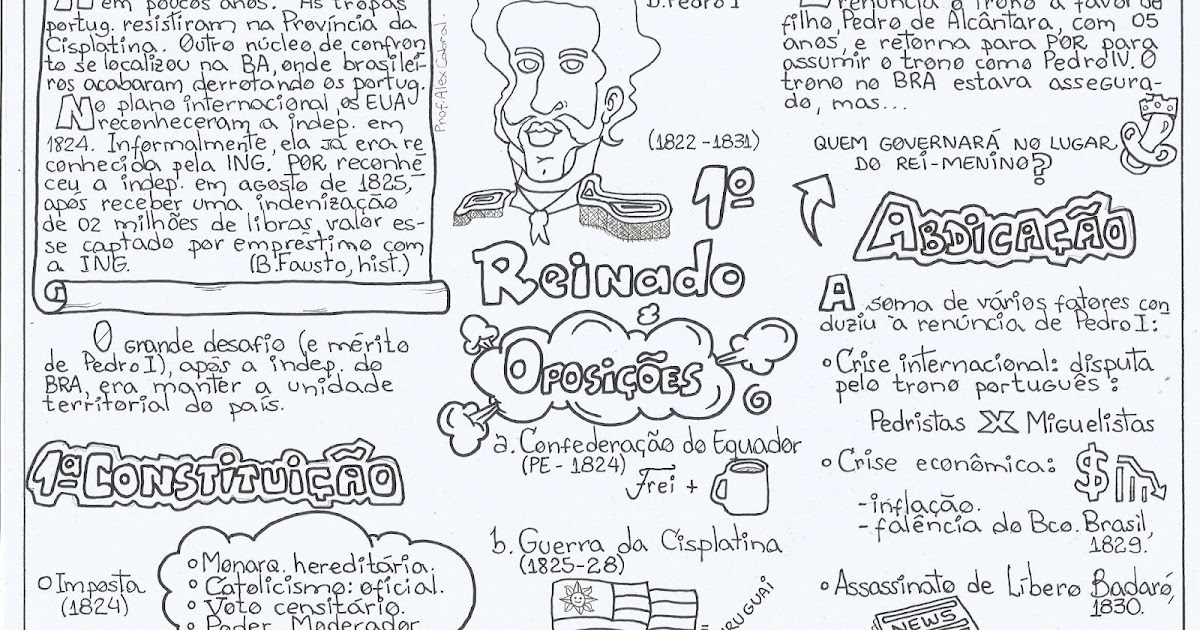 em poucos anos. As tropas
portug. resistiram na Província da
Cisplatina. Outro núcleo de confron
to se localizou na BA, onde brasilei-
ros acabaram derrotando os portug.
No plano internacional, os EUA
reconheceram a indep. em
1824. Informalmente, ela já era re
conhecida pela ING. POR reconhe-
ceu a indep. em agosto de 1825,
após receber uma indenização
de 02 milhões de libras, valor es-
se captado por emprestimo com
a ING. (B.Fausto, hist.)
O grande desafio (e mérito
de Pedro I), após a indep. do
BRA, era manter a unidade
territorial do país.
1ª Constituição
Imposta
(1824)
Monarq. hereditária.
Catolicismo: oficial.
Voto censitário.
Poder Moderador
Prof. Alex Cabral.
D. Pedro I
(1822-1831)
1º
Reinado
&
Oposições
a. Confederação do Equador
(PE - 1824)
Frei +
b. Guerra da Cisplatina
(1825-28)
= URUGUAI
renuncia o trono a favor do
filho, Pedro de Alcântara, com 05
anos, e retorna para POR para
assumir o trono como Pedro IV. O
trono no BRA estava assegura-
do, mas...
QUEM GOVERNARÁ NO LUGAR
DO REI-MENINO?
Abdicação
A soma de vários fatores con
duziu à renúncia de Pedro I:
Crise internacional: disputa
pelo trono português:
Pedristas X Miguelistas
Crise econômica:
$
-inflação.
-falência do Bco. Brasil,
1829.
Assassinato de Líbero Badaró,
1830.
NEWS